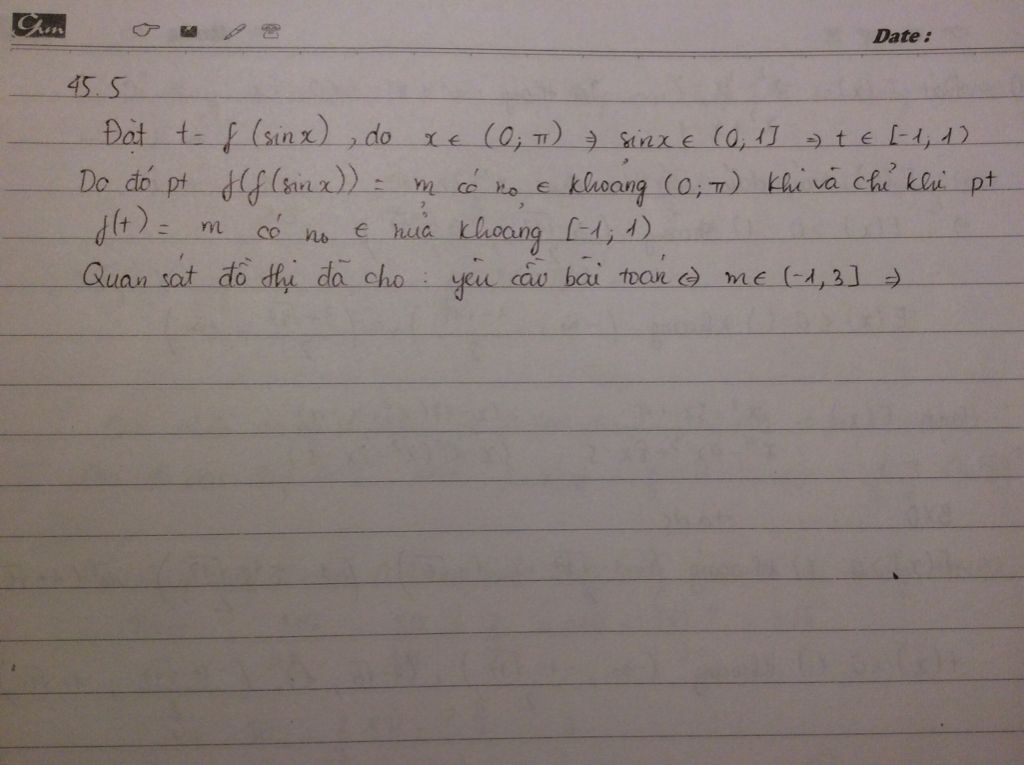 Chm
Date :
45.5
Đặt t = f (sinx) , do x ∈ (0; π) ⇒ sinx ∈ (0, 1] ⇒ t ∈ [-1, 1)
Do đó pt f(f(sinx)) = m có no ∈ khoảng (0; π) khi và chỉ khi pt
f(t) = m có no ∈ nửa khoảng [-1; 1)
Quan sát đồ thị đã cho : yêu cầu bài toán ⇔ m ∈ (-1, 3] ⇒